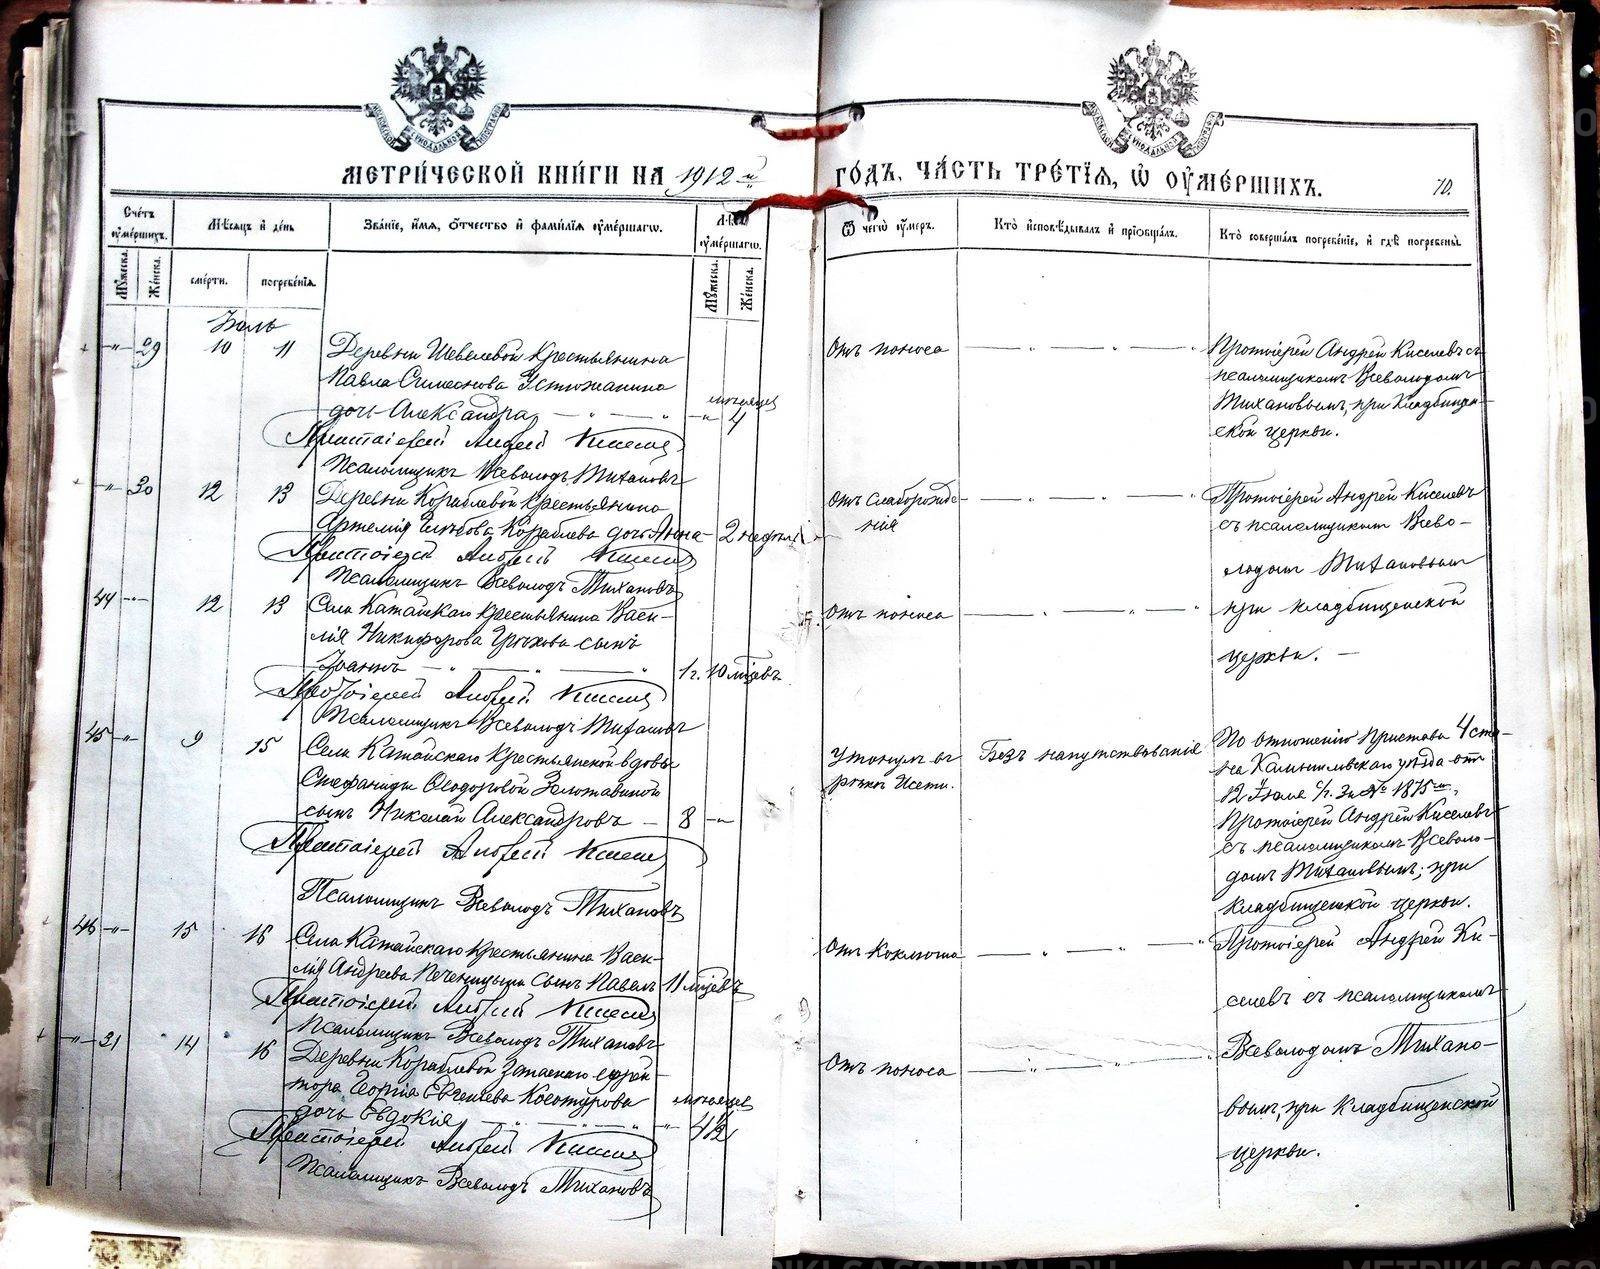 МЕТРИ́ЧЕСКОЙ КНИ́ГИ НА 1912 й
ГО́ДЪ, ЧА́СТЬ ТРЕ́ТІЯ, Ѡ ОУМЕ́РШИХЪ.
70.
Сче́тъ оуме́ршихъ.
Мѣ́сяцъ и де́нь
Зва́ніе, и́мя, о́тчество и фами́лія оуме́ршагѡ.
Лѣта оуме́ршагѡ.
Ѿ чегѡ̀ оу́меръ.
Кто̀ исповѣ́дывалъ и пріѡбща́лъ.
Кто̀ соверша́лъ погребе́ніе, и гдѣ̀ погребены̀.
Мꙋ́жеска.
Же́нска.
сме́рти.
погребе́нія.
Мꙋ́жеска.
Же́нска.
Іюль
29 10 11 Деревни Шевелевой Крестьянина
Павла Симеонова Устюжанина
дочь Александра мѣсяцев 4
Протоіерей Андрей Киселев
Псаломщикъ Всеволодъ Тихановъ
Отъ поноса
Протоіерей Андрей Киселевъ съ
псаломщикомъ Всеволодомъ
Тихановымъ, при Кладбищен-
ской церкви.
30 12 13 Деревни Кораблевой Крестьянина
Артемія Глѣбова Кораблева дочь Анна 2 недѣли
Протоіерей Андрей Киселев
Псаломщикъ Всеволодъ Тихановъ
Отъ слаборожде
нія
Протоіерей Андрей Киселевъ
съ псаломщиком Всево-
лодом Тихановым
при кладбищенской
церкви.
44 12 13 Села Катайскаго Крестьянина Васи-
лія Никифорова сынъ
Іоаннъ 1 г. 10 мѣцевъ
Протоіерей Андрей Киселев
Псаломщикъ Всеволодъ Тихановъ
Отъ поноса
45 9 15 Села Катайскаго Крестьянской вдовы
Стефаниды Ѳеодоровой Золотавиной
сынъ Николай Александровъ 8
Протоіерей Андрей Киселев
Псаломщикъ Всеволодъ Тихановъ
Утонулъ въ
рѣкѣ Исети.
Безъ напутствованія
По отношенію Пристава 4 ста-
на Камышловскаго уѣзда отъ
12 Іюля с/г. за № 1875 м,
Протоіерей Андрей Киселевъ
съ псаломщикомъ Всеволо-
домъ Тихановымъ, при
кладбищенской церкви.
46 15 16 Села Катайскаго Крестьянина Васи-
лія Андреева Печеницына сынъ Павелъ 11 мѣцевъ
Протоіерей Андрей Киселев
Псаломщикъ Всеволодъ Тихановъ
Отъ Коклюша
Протоіерей Андрей Ки-
селевъ съ псаломщикомъ
Всеволодомъ Тихано-
вымъ, при Кладбищенской
церкви.
31 14 16 Деревни Кораблевой Запаснаго ефрей-
тора Георгія Евгеніева Косотурова
дочь Евдокія мѣсяцев 4½
Протоіерей Андрей Киселев
Псаломщикъ Всеволодъ Тихановъ
Отъ поноса